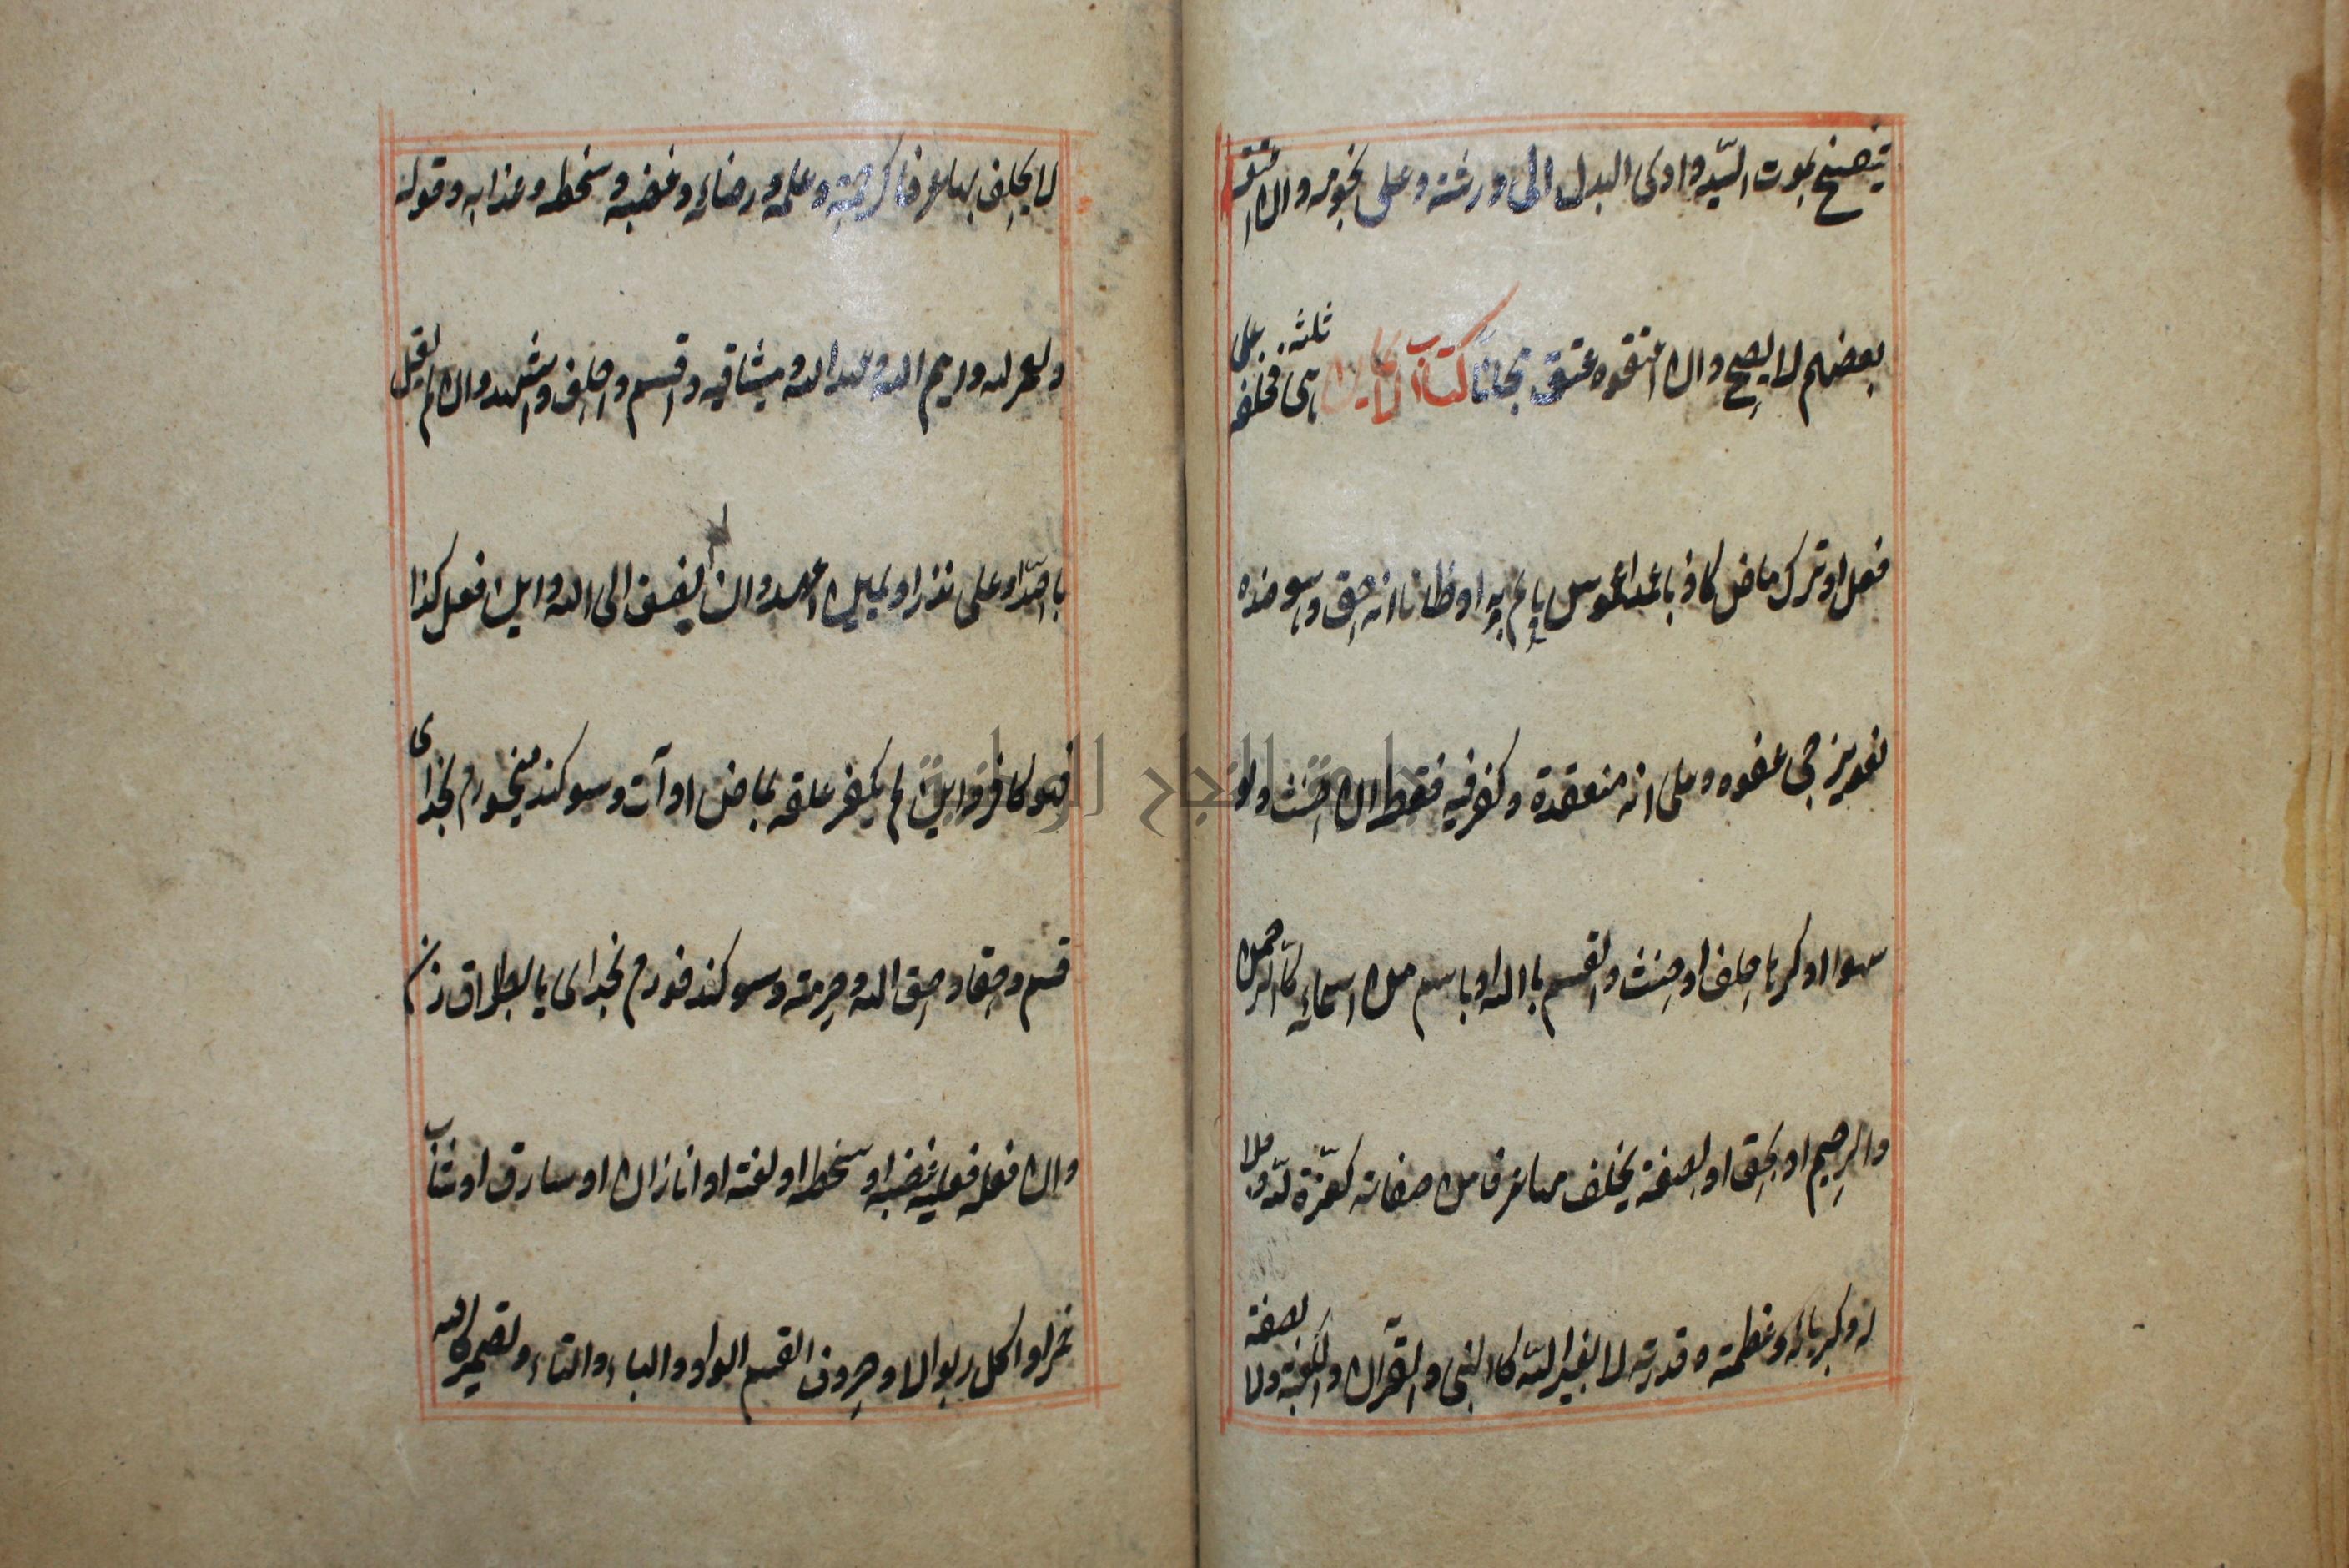 ينفسخ بموت السيد وادى البدل الى ورثته وعلى نجومه وان اعتق
بعضهم لا يصح وان اعتقوه عتق مجانا كتاب الايمان هى ثلثة فحلفه على
فعل او ترك ماض كاذبا عمدا غموس ياثم به او ظانا انه حق وهو ضده
لغو يرجى عفوه وعلى آت منعقدة وكفر فيه فقط ان حنث ولو
سهوا او كرها حلف او حنث والقسم بالله او باسم من اسمائه كالرحمن
والرحيم او بحق او بصفة يحلف بها عرفا من صفاته كعزة لله وجلا
له وكبريائه وعظمته وقدرته لا بغير الله كالنبى والقرآن والكعبة ولا بصفة
لا يحلف بها عرفا كرحمته وعلمه ورضائه وغضبه وسخطه وعذابه وقوله
ولعمر الله وايم الله وعهد الله وميثاقه واقسم واحلف واشهد وان لم يقل
بالله وعلى نذر او يمين او عهد وان لم يضف الى الله وان فعل كذا
فهو كافر وان لم يكفر علقه بماض او آت وسوكند ميخورم بخداى
قسم وحقا وحق الله وحرمته وسوكند خورم بخداى يا بطلاق زن
وان فعله فعليه غضبه او سخطه او لعنته او انا زان او سارق او شارب
خمر او اكل ربوا لا وحروف القسم الواو والباء والتاء وتضمر كالله